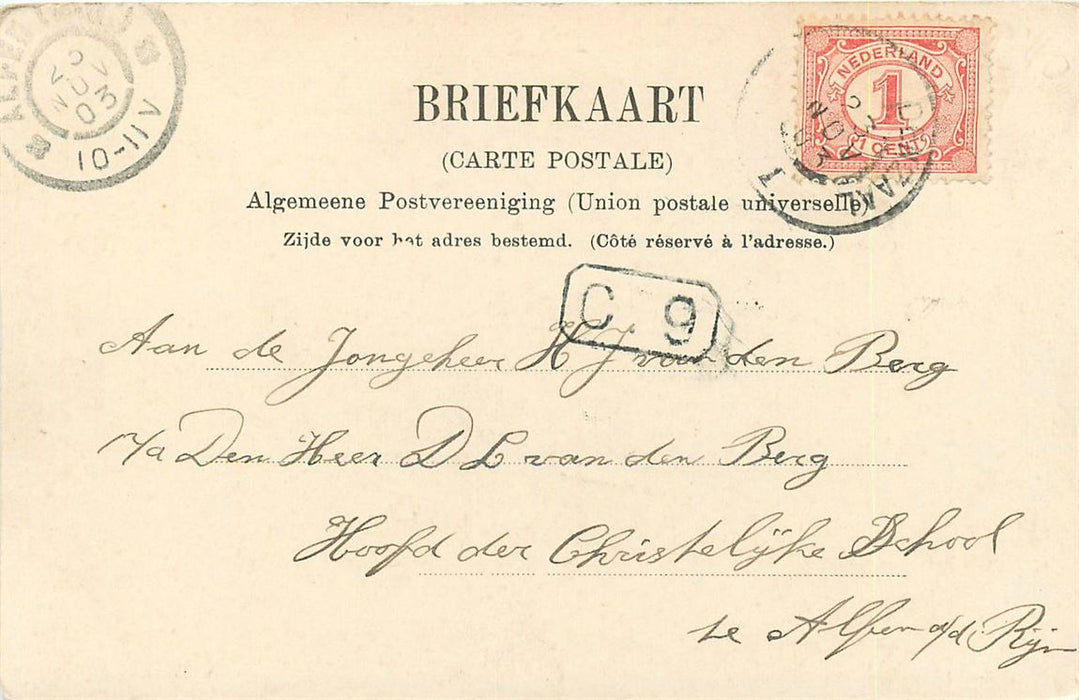 NOV
03
10-11V
NEDERLAND
1
1 CENT
NOV
03
BRIEFKAART
(CARTE POSTALE)
Algemeene Postvereeniging (Union postale universelle)
Zijde voor het adres bestemd. (Côté réservé à l'adresse.)
C 9
Aan de Jongeheer H J van den Berg
p/a Den Heer D L van den Berg
Hoofd der Christelijke School
te Alfen a/d. Rijn